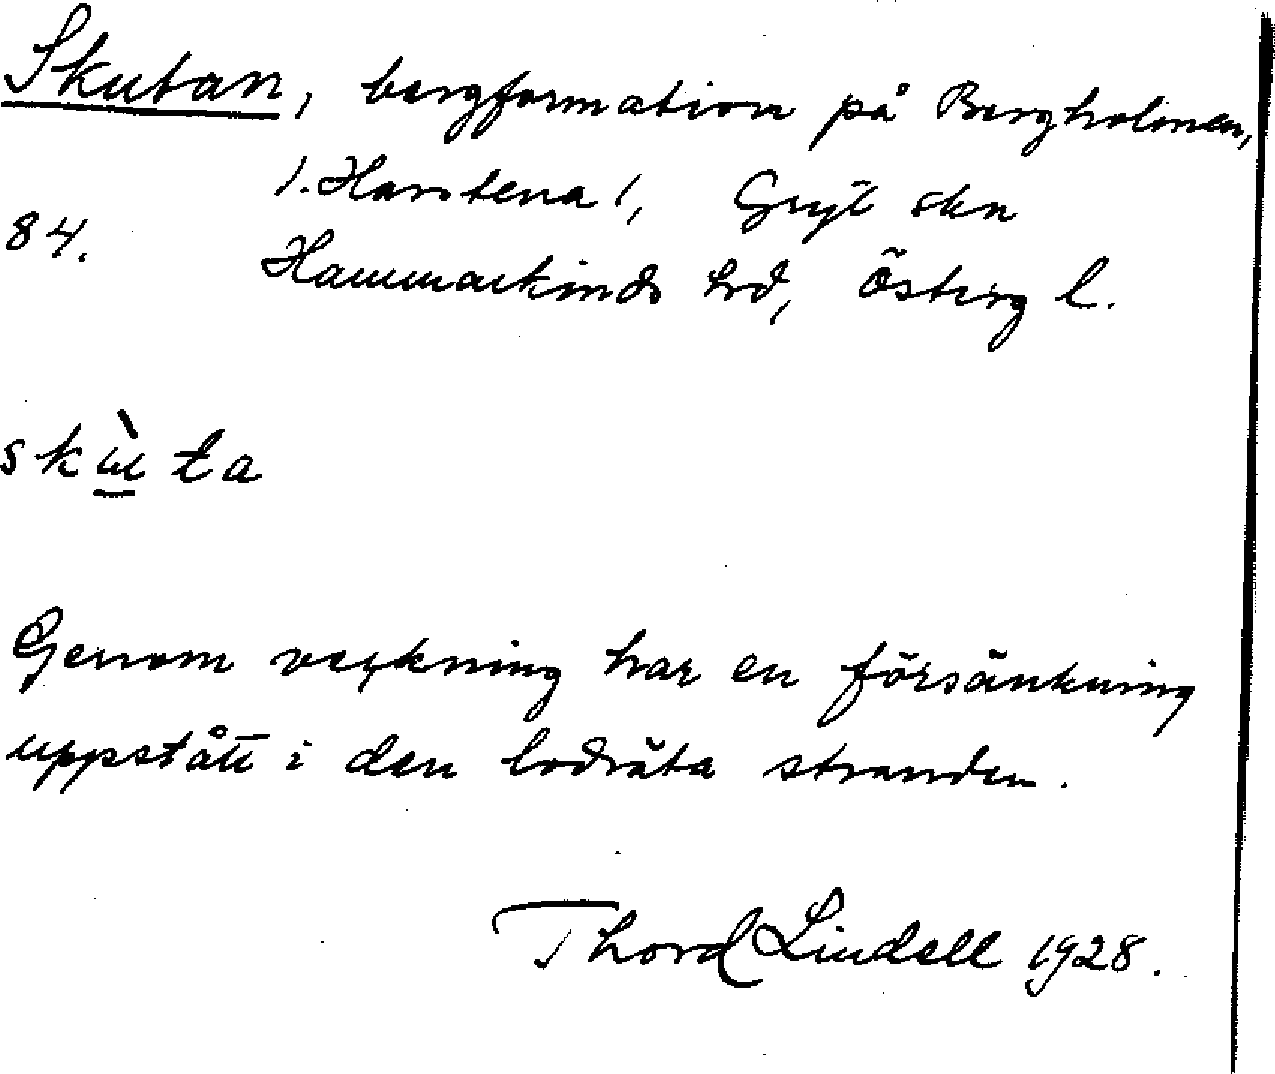 Skutan, bergformation på Bergholmen,
/. Harstena /, Gryt skn
84.
Hammarkinds hd, Österg l.
skɯ̀ta
Genom verkning har en försänkning
uppstått i den lodräta stranden.
Thord Lindell 1928.